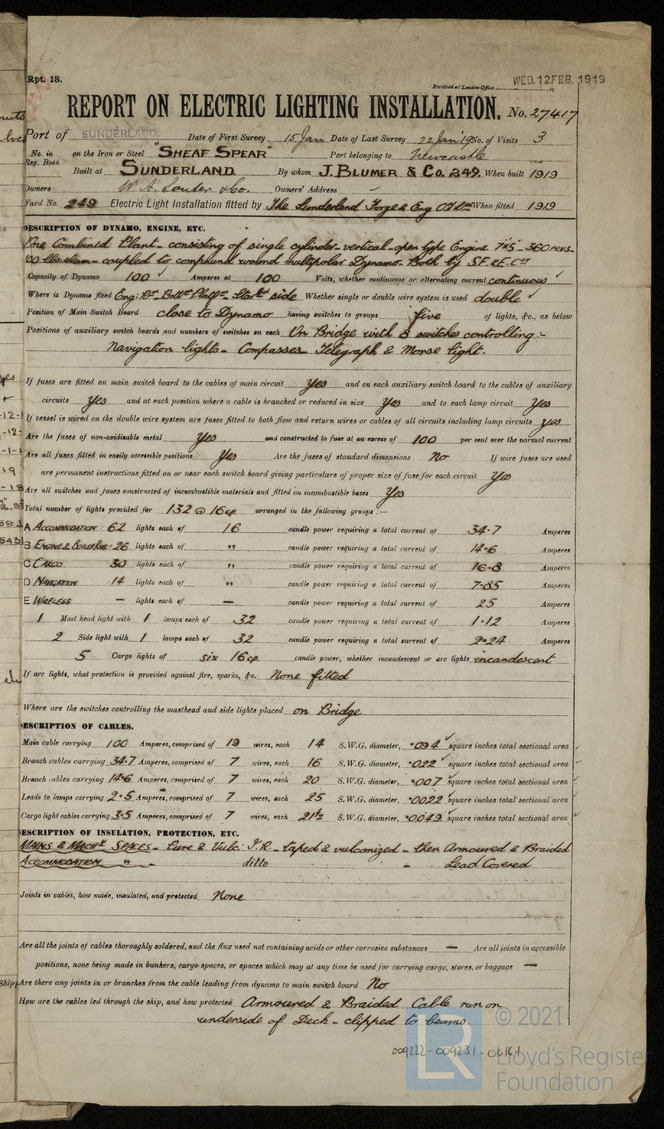 Rpt. 13.
Received at London Office WED. 12 FEB. 1919
REPORT ON ELECTRIC LIGHTING INSTALLATION. No. 27417
Port of SUNDERLAND Date of First Survey 15 Jan Date of Last Survey 22 Jan '19 No. of Visits 3
No. in Reg. Book on the Iron or Steel "SHEAF SPEAR" Port belonging to Newcastle
Built at SUNDERLAND. By whom J. BLUMER & Co. 249. When built 1919
Owners W. A. Souter & Co. Owners' Address
Yard No. 249 Electric Light Installation fitted by The Sunderland Forge & Eng Co Ltd When fitted 1919
DESCRIPTION OF DYNAMO, ENGINE, ETC.
One Combined Plant - consisting of single cylinder - vertical - open type Engine 7x5 - 360 revs.
coupled to compound wound multipolar Dynamo. Both by S.F. & E. Coy
Capacity of Dynamo 100 Amperes at 100 Volts, whether continuous or alternating current continuous
Where is Dynamo fixed Eng: Rm. Bottm Platfm - Starbd side Whether single or double wire system is used double
Position of Main Switch Board close to Dynamo having switches to groups five of lights, &c., as below
Positions of auxiliary switch boards and numbers of switches on each On Bridge with 8 switches controlling:-
Navigation lights - Compasses - Telegraph & Morse light.
If fuses are fitted on main switch board to the cables of main circuit Yes and on each auxiliary switch board to the cables of auxiliary
circuits Yes and at each position where a cable is branched or reduced in size Yes and to each lamp circuit Yes
If vessel is wired on the double wire system are fuses fitted to both flow and return wires or cables of all circuits including lamp circuits yes
Are the fuses of non-oxidizable metal Yes and constructed to fuse at an excess of 100 per cent over the normal current
Are all fuses fitted in easily accessible positions Yes Are the fuses of standard dimensions No If wire fuses are used
are permanent instructions fitted on or near each switch board giving particulars of proper size of fuse for each circuit Yes
Are all switches and fuses constructed of incombustible materials and fitted on incombustible bases Yes
Total number of lights provided for 132 @ 16 cp arranged in the following groups :-
A ACCOMMODATION 62 lights each of 16 candle power requiring a total current of 34.7 Amperes
B ENGINE & BOILER RMS 26 lights each of " candle power requiring a total current of 14.6 Amperes
C CARGO 30 lights each of " candle power requiring a total current of 16.8 Amperes
D NAVIGATION 14 lights each of " candle power requiring a total current of 7.85 Amperes
E WIRELESS - lights each of - candle power requiring a total current of 25 Amperes
1 Mast head light with 1 lamps each of 32 candle power requiring a total current of 1.12 Amperes
2 Side light with 1 lamps each of 32 candle power requiring a total current of 2.24 Amperes
5 Cargo lights of six 16 cp candle power, whether incandescent or arc lights incandescent
If arc lights, what protection is provided against fire, sparks, &c. None fitted
Where are the switches controlling the masthead and side lights placed on Bridge
DESCRIPTION OF CABLES.
Main cable carrying 100 Amperes, comprised of 19 wires, each 14 S.W.G. diameter, .094 square inches total sectional area
Branch cables carrying 34.7 Amperes, comprised of 7 wires, each 16 S.W.G. diameter, .022 square inches total sectional area
Branch cables carrying 14.6 Amperes, comprised of 7 wires, each 20 S.W.G. diameter, .007 square inches total sectional area
Leads to lamps carrying 2.5 Amperes, comprised of 7 wires, each 25 S.W.G. diameter, .0022 square inches total sectional area
Cargo light cables carrying 3.5 Amperes, comprised of 7 wires, each 21½ S.W.G. diameter, .0049 square inches total sectional area
DESCRIPTION OF INSULATION, PROTECTION, ETC.
MAINS & MACHY SPACES - Pure & Vulc: I.R. - taped & vulcanized - then Armoured & Braided
ACCOMMODATION " - ditto - Lead Covered
Joints in cables, how made, insulated, and protected None
Are all the joints of cables thoroughly soldered, and the flux used not containing acids or other corrosive substances - Are all joints in accessible
positions, none being made in bunkers, cargo spaces, or spaces which may at any time be used for carrying cargo, stores, or baggage -
Are there any joints in or branches from the cable leading from dynamo to main switch board No
How are the cables led through the ship, and how protected Armoured & Braided Cable run on
underside of Deck - clipped to beams.
009222-009231-0161
© 2021
LR Lloyd's Register
Foundation